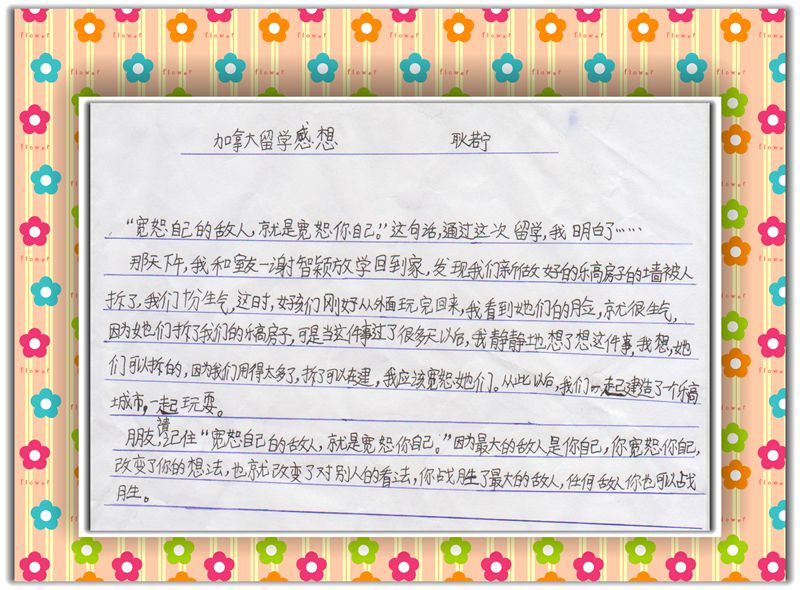 加拿大留学感想 耿若宁
“宽恕自己的敌人,就是宽恕你自己。”这句话,通过这次留学,我明白了……
那天下午,我和室友—谢智颖放学回到家,发现我们新做好的乐高房子的墙被人
拆了,我们十分生气,这时,女孩们刚好从外面玩完回来,我看到她们的脸,就很生气,
因为她们拆了我们的乐高房子,可是当这件事过了很多天以后,我静静地想了想这件事,我想,她
们可以拆的,因为我们用得太多了,拆了可以在建,我应该宽恕她们。从此以后,我们一起建造了一个乐高
城市,一起玩耍。
朋友,请记住“宽恕自己的敌人,就是宽恕你自己。”因为最大的敌人是你自己,你宽恕你自己,
改变了你的想法,也就改变了对别人的看法,你战胜了最大的敌人,任何敌人你也可以战
胜。
flower